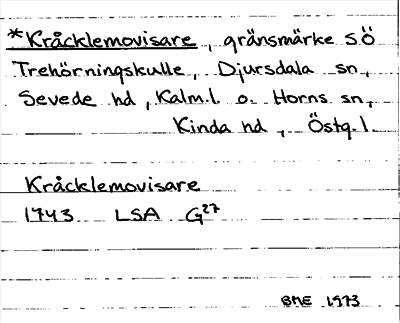 *Kråcklemovisare, gränsmärke SÖ
Trehörningskulle, Djursdala sn,
Sevede hd, Kalm.l. o. Horns sn,
Kinda hd, Östg.l.
Kråcklemovisare
1743 LSA G27
BME 1973